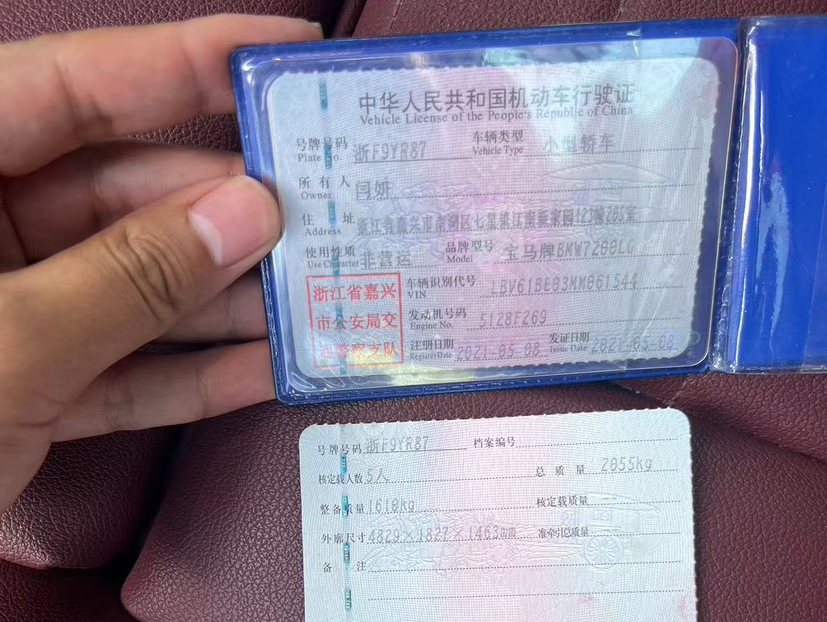 中华人民共和国机动车行驶证
Vehicle License of the People's Republic of China
号牌号码 浙F9YR87 车辆类型 小型轿车
Plate No. Vehicle Type
所有人 闫妍
Owner
住址 浙江省嘉兴市南湖区七星镇江南新家园123幢205室
Address
使用性质 非营运 品牌型号 宝马牌BMW7200LG
Use Character Model
浙江省嘉兴 车辆识别代号 LBV61BE03MM061544
VIN
市公安局交 发动机号码 5128F269
Engine No.
通警察支队 注册日期 2021-05-08 发证日期 2021-05-08
Register Date Issue Date
号牌号码 浙F9YR87 档案编号
核定载人数 5人 总质量 2055kg
整备质量 1610kg 核定载质量 --
外廓尺寸 4829×1827×1463mm 准牵引总质量 --
备注